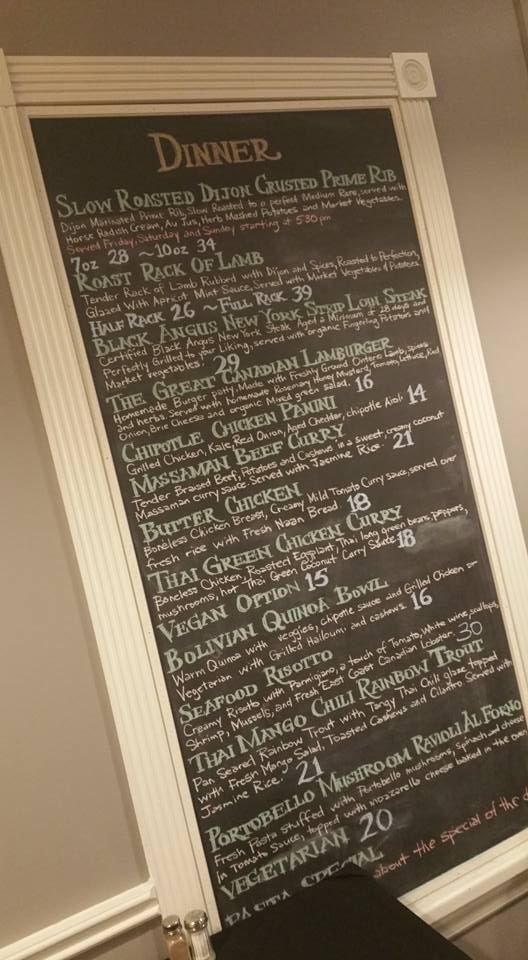 DINNER
SLOW ROASTED DIJON CRUSTED PRIME RIB
Dijon Marinated Prime Rib, Slow Roasted to a perfect Medium Rare, served with
Horse Radish Cream, Au Jus, Herb Mashed Potatoes and Market Vegetables.
Served Friday, Saturday and Sunday starting at 530pm
7oz 28 ~ 10oz 34
ROAST RACK OF LAMB
Tender Rack of Lamb Rubbed with Dijon and Spices, Roasted to Perfection,
Glazed With Apricot Mint Sauce, Served with Market Vegetables & Potatoes
HALF RACK 26 ~ FULL RACK 39
BLACK ANGUS NEW YORK STRIP LOIN STEAK
Certified Black Angus New York Steak Aged a Minimum of 28 days and
Perfectly Grilled to your Liking, served with organic Fingerling Potatoes and
Market vegetables. 29
THE GREAT CANADIAN LAMBURGER
Homemade Burger patty Made with Freshly Ground Ontario Lamb, spices
and herbs. Served with homemade Rosemary Honey Mustard, Tomato, Lettuce, Red
Onion, Brie Cheese and organic Mixed green salad. 16
CHIPOTLE CHICKEN PANINI
Grilled Chicken, Kale, Red Onion, Aged Cheddar, chipotle Aioli 14
MASSAMAN BEEF CURRY
Tender Braised Beef, Potatoes and Cashews in a sweet, creamy coconut
Massaman curry sauce. Served with Jasmine Rice. 21
BUTTER CHICKEN
Boneless Chicken Breast, Creamy Mild Tomato Curry sauce, served over
fresh rice with Fresh Naan Bread 18
THAI GREEN CHICKEN CURRY
Boneless Chicken, Roasted Eggplant, Thai long green beans, peppers,
mushrooms, hot Thai Green Coconut Curry Sauce 18
VEGAN OPTION 15
BOLIVIAN QUINOA BOWL
Warm Quinoa with veggies, chipotle sauce and Grilled Chicken or
Vegetarian with Grilled Halloumi and cashews 16
SEAFOOD RISOTTO
Creamy Risotto with Parmigiano, a touch of Tomato, White wine, scallops,
Shrimp, Mussels, and Fresh East Coast Canadian Lobster. 30
THAI MANGO CHILI RAINBOW TROUT
Pan Seared Rainbow Trout with Tangy Thai Chili glaze topped
with Fresh Mango Salad, Toasted Cashews and Cilantro Served with
Jasmine Rice. 21
PORTOBELLO MUSHROOM RAVIOLI AL FORNO
Fresh Pasta stuffed with Portobello mushrooms, spinach and cheese
in Tomato Sauce, topped with mozzarella cheese baked in the oven
VEGETARIAN 20
PASTA SPECIAL
about the special of the